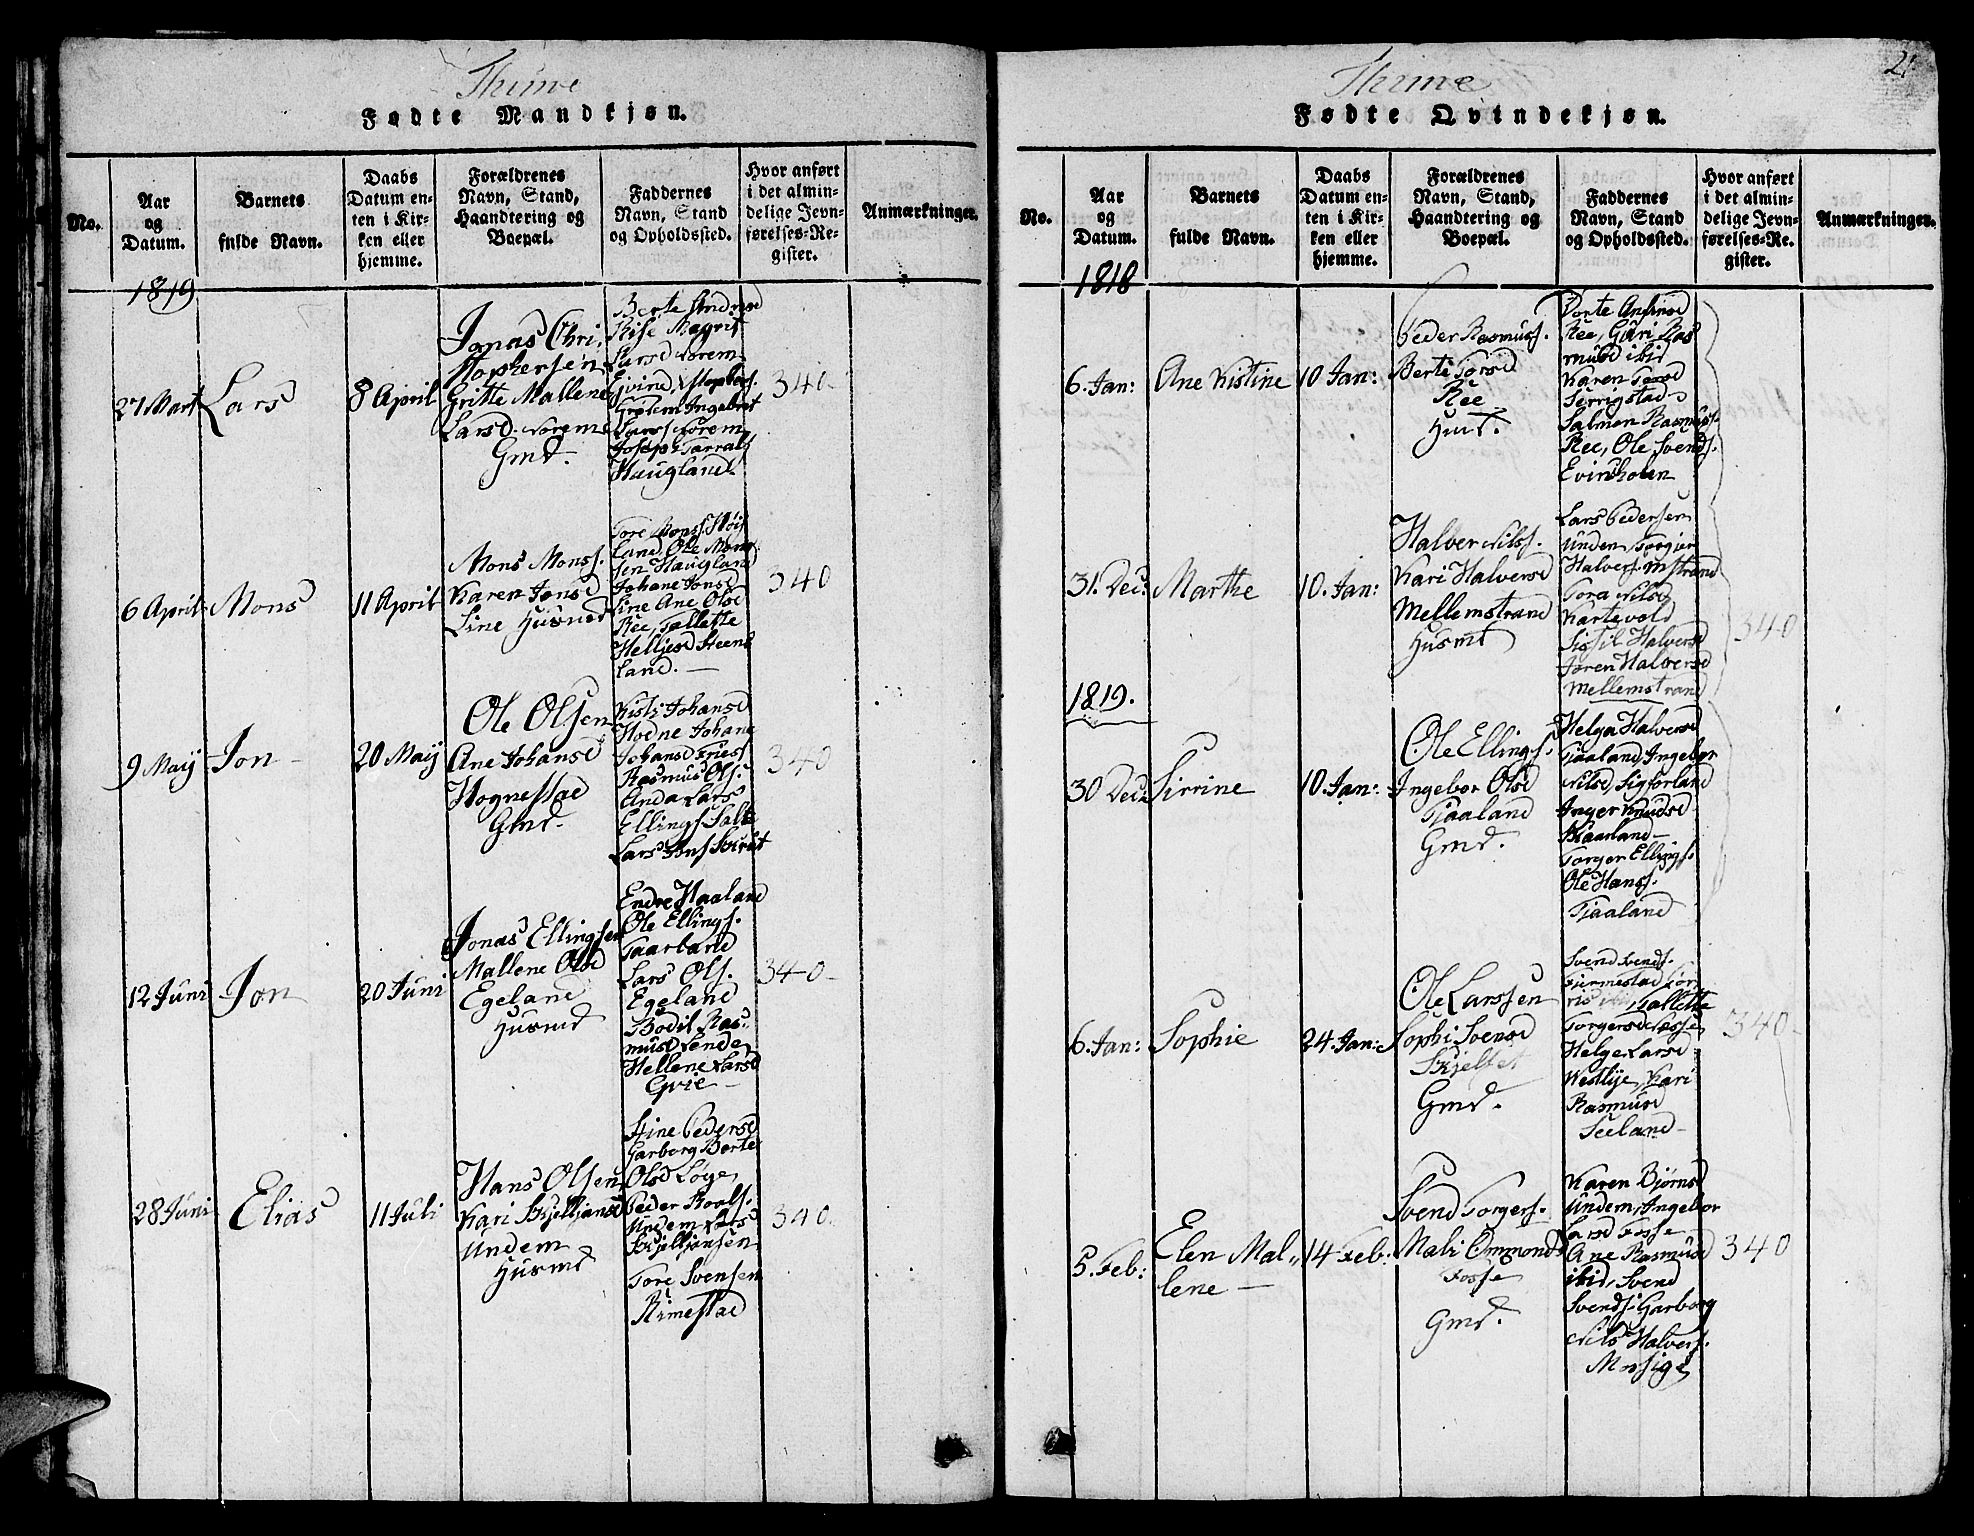 Thime
Fødte Mandkjøn.
No.
Aar
og
Datum.
Barnets
fulde Navn.
Daabs
Datum en-
ten i Kir-
ken eller
hjemme.
Forældrenes
Navn, Stand,
Haandtering og
Boepæl.
Faddernes
Navn, Stand
og Opholdssted.
Hvor anført
i det almin-
delige Jevn-
førelses-Re-
gister.
Anmærkninger.
1819
27 Mart
Lars
8 April
Jonas Chri
stophersen
Gritte Mallene
Larsd. Norem
Gmd.
Berte Andersd
Rise Magrit
Larsd Norem
Ejvind
Grødem Ingebret
Larss Norem
Joseph Tarrals
Haugland
340
6 April
Mons
11 April
Mons Monss.
Karen Jonsd
Line Husmd
Tore Monss. Høi
land, Ole Mons
sen Haugland
Johane Jonsd
Line Ane Olsd
Ree, Tallette
Helljesd Steens
land.
340
9 Maij
Jon
20 Maij
Ole Olsen
Ane Johansd
Hognestad
Gmd.
Kisti Johansd
Hodne Johane
Johansd
Rasmus Ols.
Anda Lars
Ellings Salte
Lars Jons
340
12 Juni
Jon
20 Juni
Jonas Ellingsen
Mallene Olsd
Egeland
Husmd
Endre Haaland
Ole Ellings.
Taarland
Lars Ols.
Egeland
Bodil Ras-
musd Lende
Hellene Larsd
Qvie
340
28 Juni
Elias
11 Juli
Hans Olsen
Kari Skjelljansd
Undem
Husmd
Stine Pedersd
Garborg Berte
Olsd Løge
Peder Roals.
Undem Lars
Skjelljansen
Tore Svensen
Rimestad
340
2
Thime
Fødte Qvindekjøn.
No.
Aar
og
Datum.
Barnets
fulde Navn.
Daabs
Datum en-
ten i Kir-
ken eller
hjemme.
Forældrenes
Navn, Stand,
Haandtering og
Boepæl.
Faddernes
Navn, Stand
og Opholdssted.
Hvor anført
i det almin-
delige Jevn-
førelses-Re-
gister.
Anmærkninger.
1818
6. Jan:
Ane Kistine
10 Jan:
Peder Rasmuss.
Berte Torsd
Ree
Husmt.
Dorte Anfinsd
Ree, Guri Ras
musd ibid
Karen Torsd
Serrigstad
Salmon Rasmuss.
Ree, Ole Svends.
Evindholen
31. Dec:
Marthe
10. Jan:
Halver Nilss.
Kari Halversd
Mellemstrand
Husmt
Lars Pedersen
Unden Torgier
Halvers. Mstrand
Tora Nilsd
Kartevold
Sissil Halversd
Joren Halversd
Mellemstrand
340
1819.
30 Dec:
Sirrine
10. Jan:
Ole Ellings.
Ingebor Olsd
Tjaaland
Gmd.
Helga Halversd
Tjaaland Ingebor
Nilsd, Sigforland
Inger Knudsd
Taarland
Torger Ellings.
Ole Hanss.
Tjaaland
6. Jan:
Sophie
24. Jan:
Ole Larssen
Sophi Svensd
Skjeltet
Gmd.
Svend Svends.
Fjermestad Jør
ris ibid, Tallette
Torgersd Fosse
Helge Larsd
Westlye, Kari
Rasmusd
Seeland
340
5. Feb:
Elen Mal-
lene
14 Feb:
Svend Torgers.
Mali Ommonds
Fosse
Gmd.
Karen Bjørnsd
Undem, Ingebor
Larsd Fosse
Ane Rasmusd
ibid, Svend
Svends. Garborg
Nils Halvers.
Mossige
340